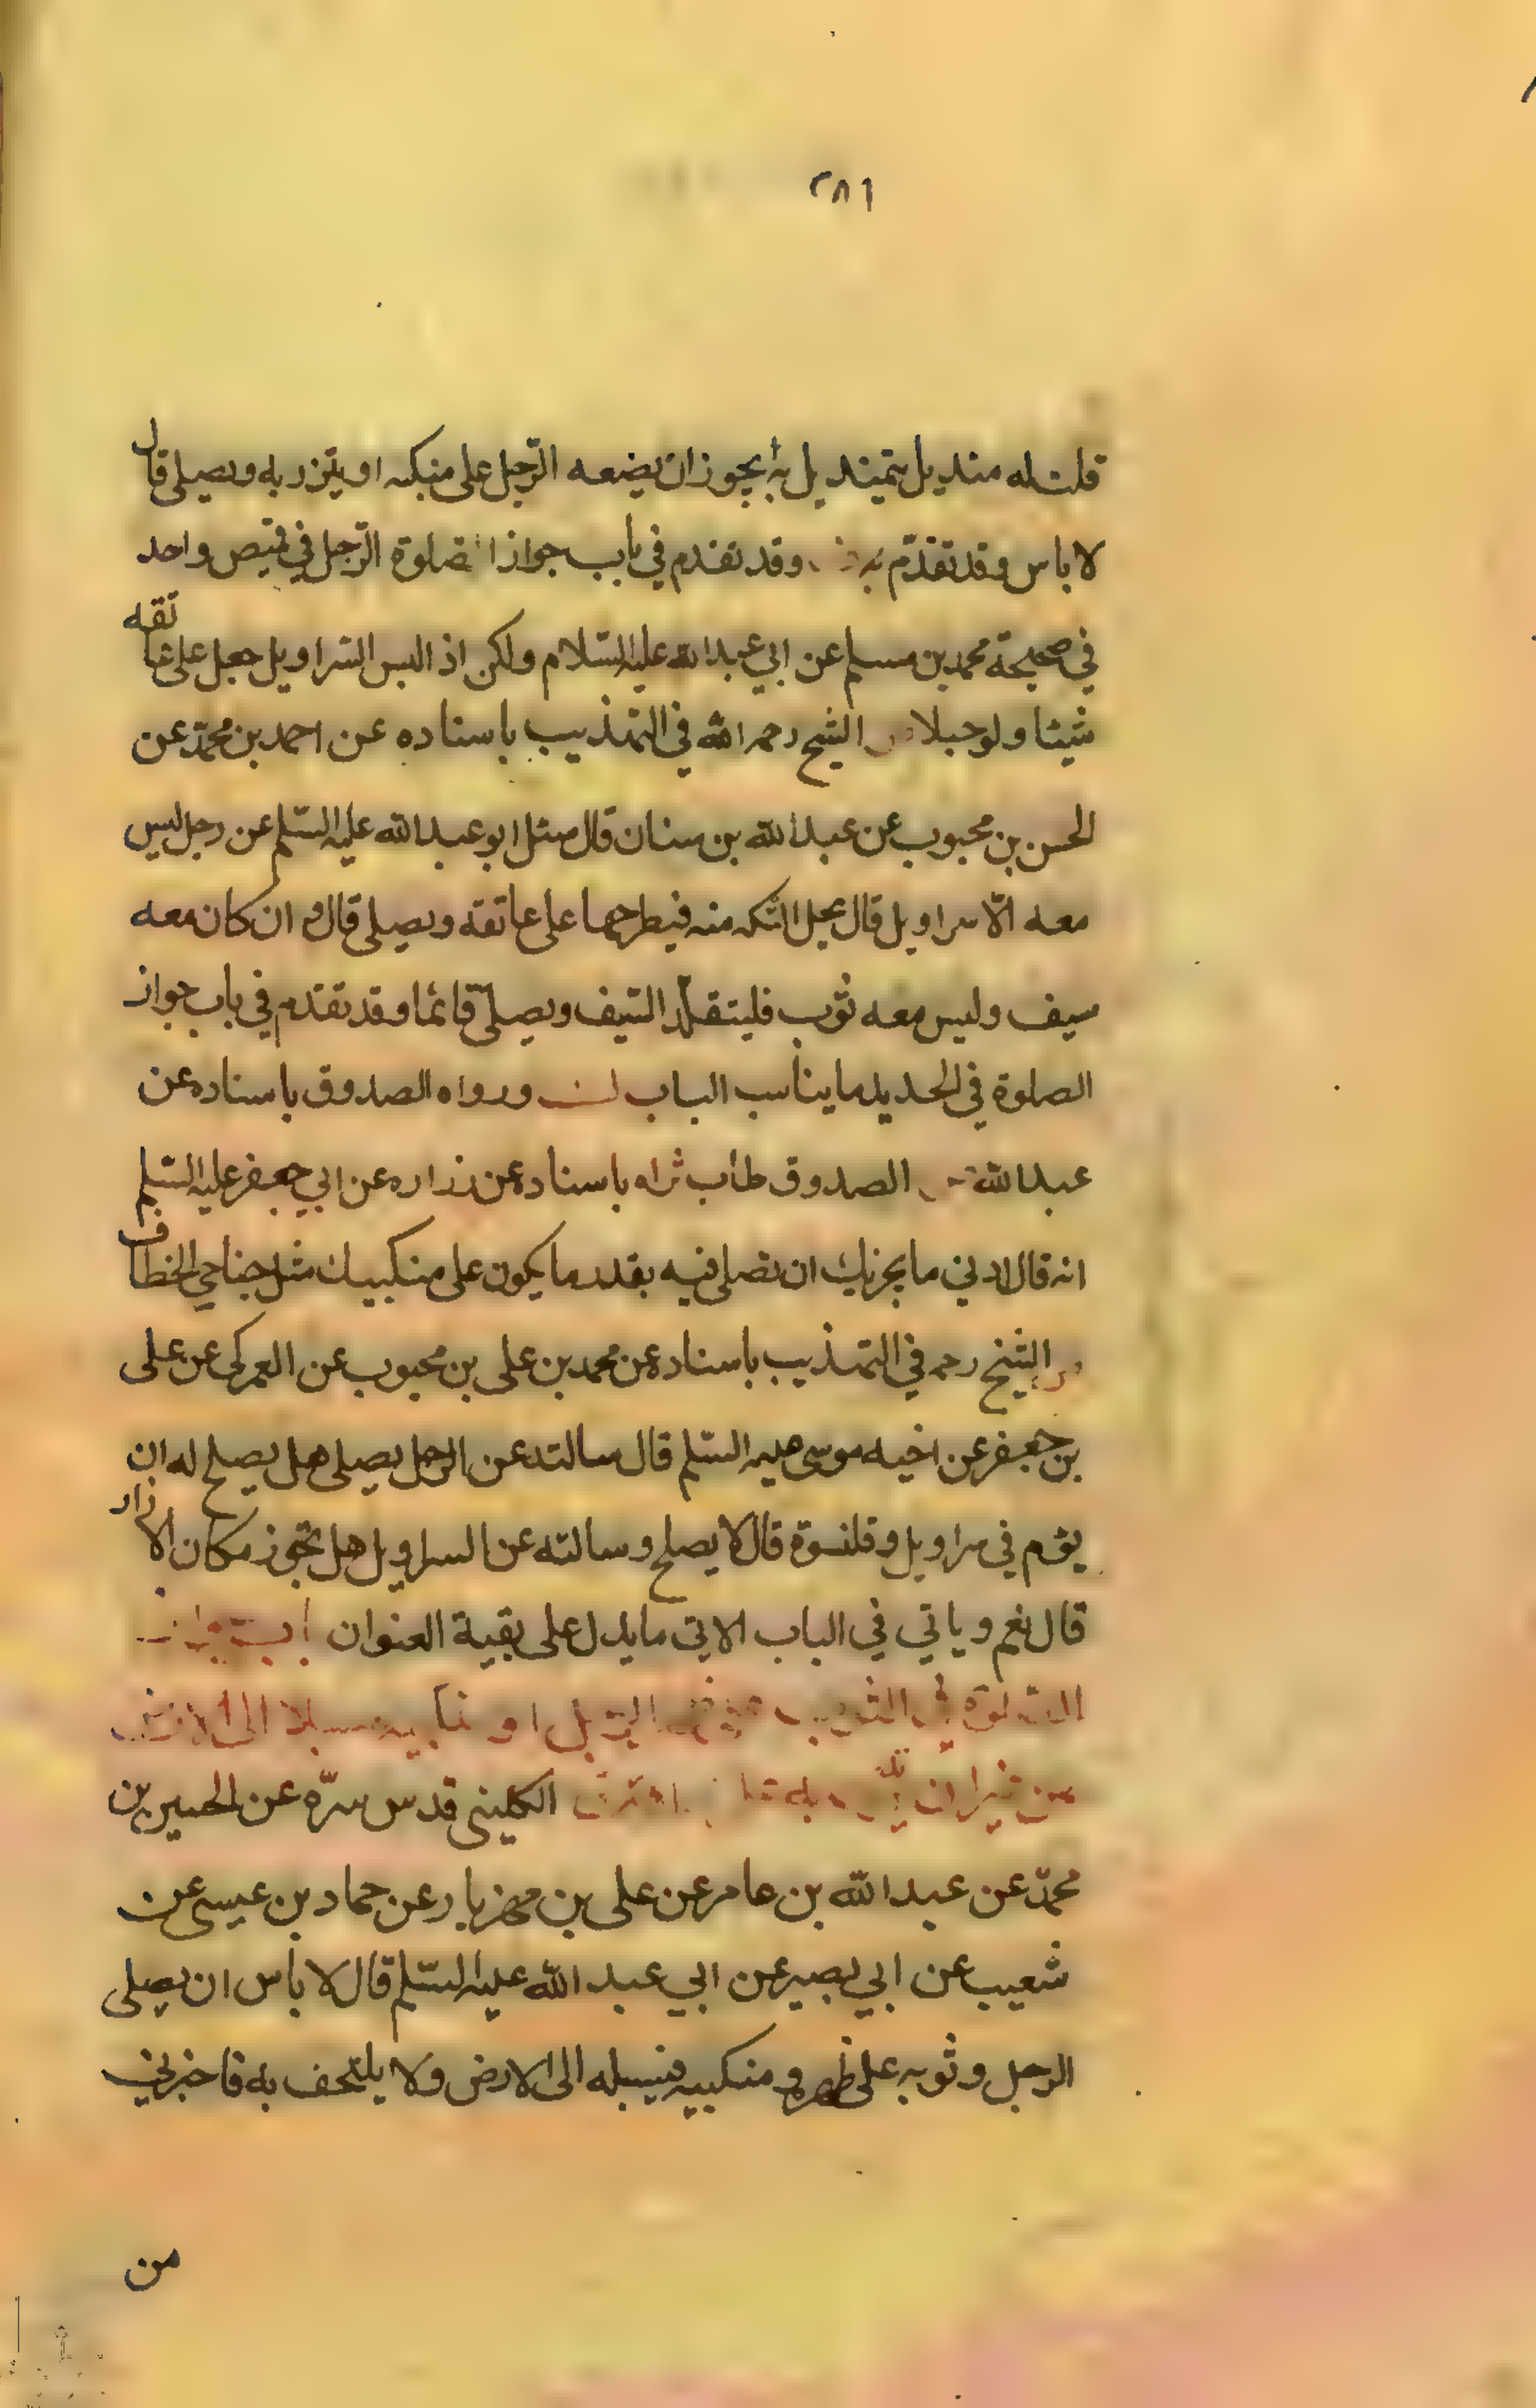 ٢٨١
قلت له منديل يتمنديل به أيجوز ان يضعه الرّجل على منبكه او يتزر به ويصلى قال
لا باس وقد تقدّم وقد تقدم في باب جواز الصلوة الرّجل في قميص واحد
في صحيحة محمد بن مسلم عن ابي عبد الله عليه السّلام ولكن اذا لبس السّراويل جعل على عاتقه
شيئا ولو حبلا الشيخ رحمه الله في التهذيب باسناده عن احمد بن محمّد عن
الحسن بن محبوب عن عبد الله بن سنان قال سئل ابو عبد الله عليه السّلم عن رجل ليس
معه الّا سراويل قال يحل التكه منه فيطرحها على عاتقه ويصلى قال و ان كان معه
سيف وليس معه ثوب فليتقلّد السّيف ويصلّى قائما وقد تقدّم في باب جواز
الصلوة في الحديد ما يناسب الباب ورواه الصدوق باسناده عن
عبد الله الصدوق طاب ثراه باسناده عن زراره عن ابي جعفر عليه السّلم
انه قال ادنى ما يجزيك ان تصلى فيه بقدر ما يكون على منكبيك مثل جناحي الخطاف
الشيخ رحمه في التهذيب باسناده عن محمد بن على بن محبوب عن العمركي عن على
بن جعفر عن اخيه موسى عليه السّلم قال سالته عن الرجل يصلى هل يصلح له ان
يؤم في سراويل وقلنسوة قال لا يصلح وسالته عن السراويل هل تجوز مكان الازار
قال نعم و ياتي في الباب الاتي ما يدل على بقية العنوان باب جواز
الصلوة في الثوب على الرجل او منكبيه مسبلا الى الارض
من غير ان الكليني قدس سرّه عن الحسين بن
محمّد عن عبد الله بن عامر عن على بن مهزيار عن حماد بن عيسى عن
شعيب عن ابي بصير عن ابي عبد الله عليه السّلم قال لا بأس ان يصلى
الرجل وثوبه على ظهره و منكبيه فيسبله الى الارض ولا يلتحف به فاخبرني
من